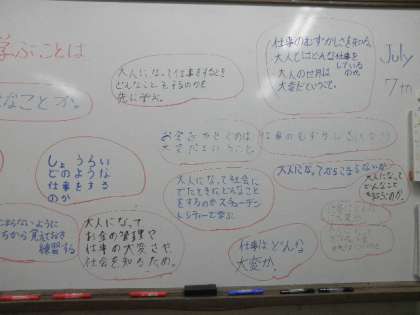 学ぶことは
なことか。
大人になって仕事をするとき
どんなことをするのかを
先に学ぶ。
仕事のむずかしさを知る。
大人とはどんな仕事を
しているのか。
大人の世界は
大変だということ。
July
7th
お金をかせぐのは
大変だということ
仕事のむずかしさ
しょうらい
どのような
仕事をする
のか
大人になって社会に
でたときにどんなこと
をするのかスチューデント
シティーで学ぶ
大人になってからこまらないか
大人になって
どんなこと
ならないように
ちから覚えておき
練習する
大人になって
お金の管理や
仕事の大変さや
社会を知るため。
仕事はどんな
大変か。